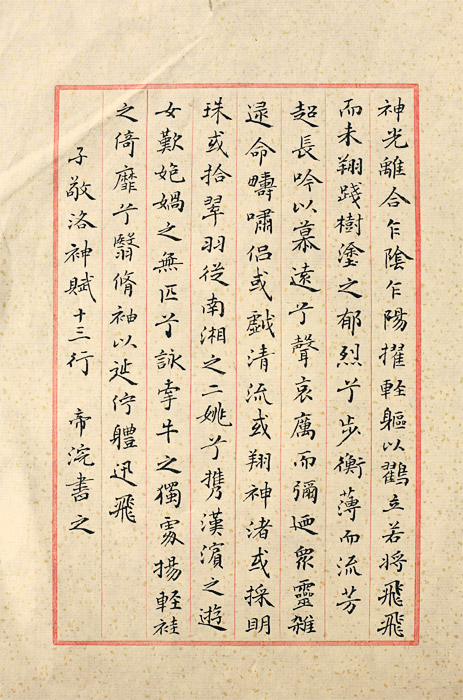 神光離合乍陰乍陽擢輕軀以鶴立若将飛飛
而未翔踐樹塗之郁烈兮步衡薄而流芳
超長吟以慕遠兮聲哀厲而彌迥眾靈雜
遝命疇嘯侶或戯清流或翔神渚或採明
珠或拾翠羽從南湘之二姚兮攜漢濱之遊
女歎媧之無匹兮詠牽牛之獨處揚輕袿
之倚靡兮翳脩袖以延佇體迅飛
子敬洛神賦十三行 帝浣書之